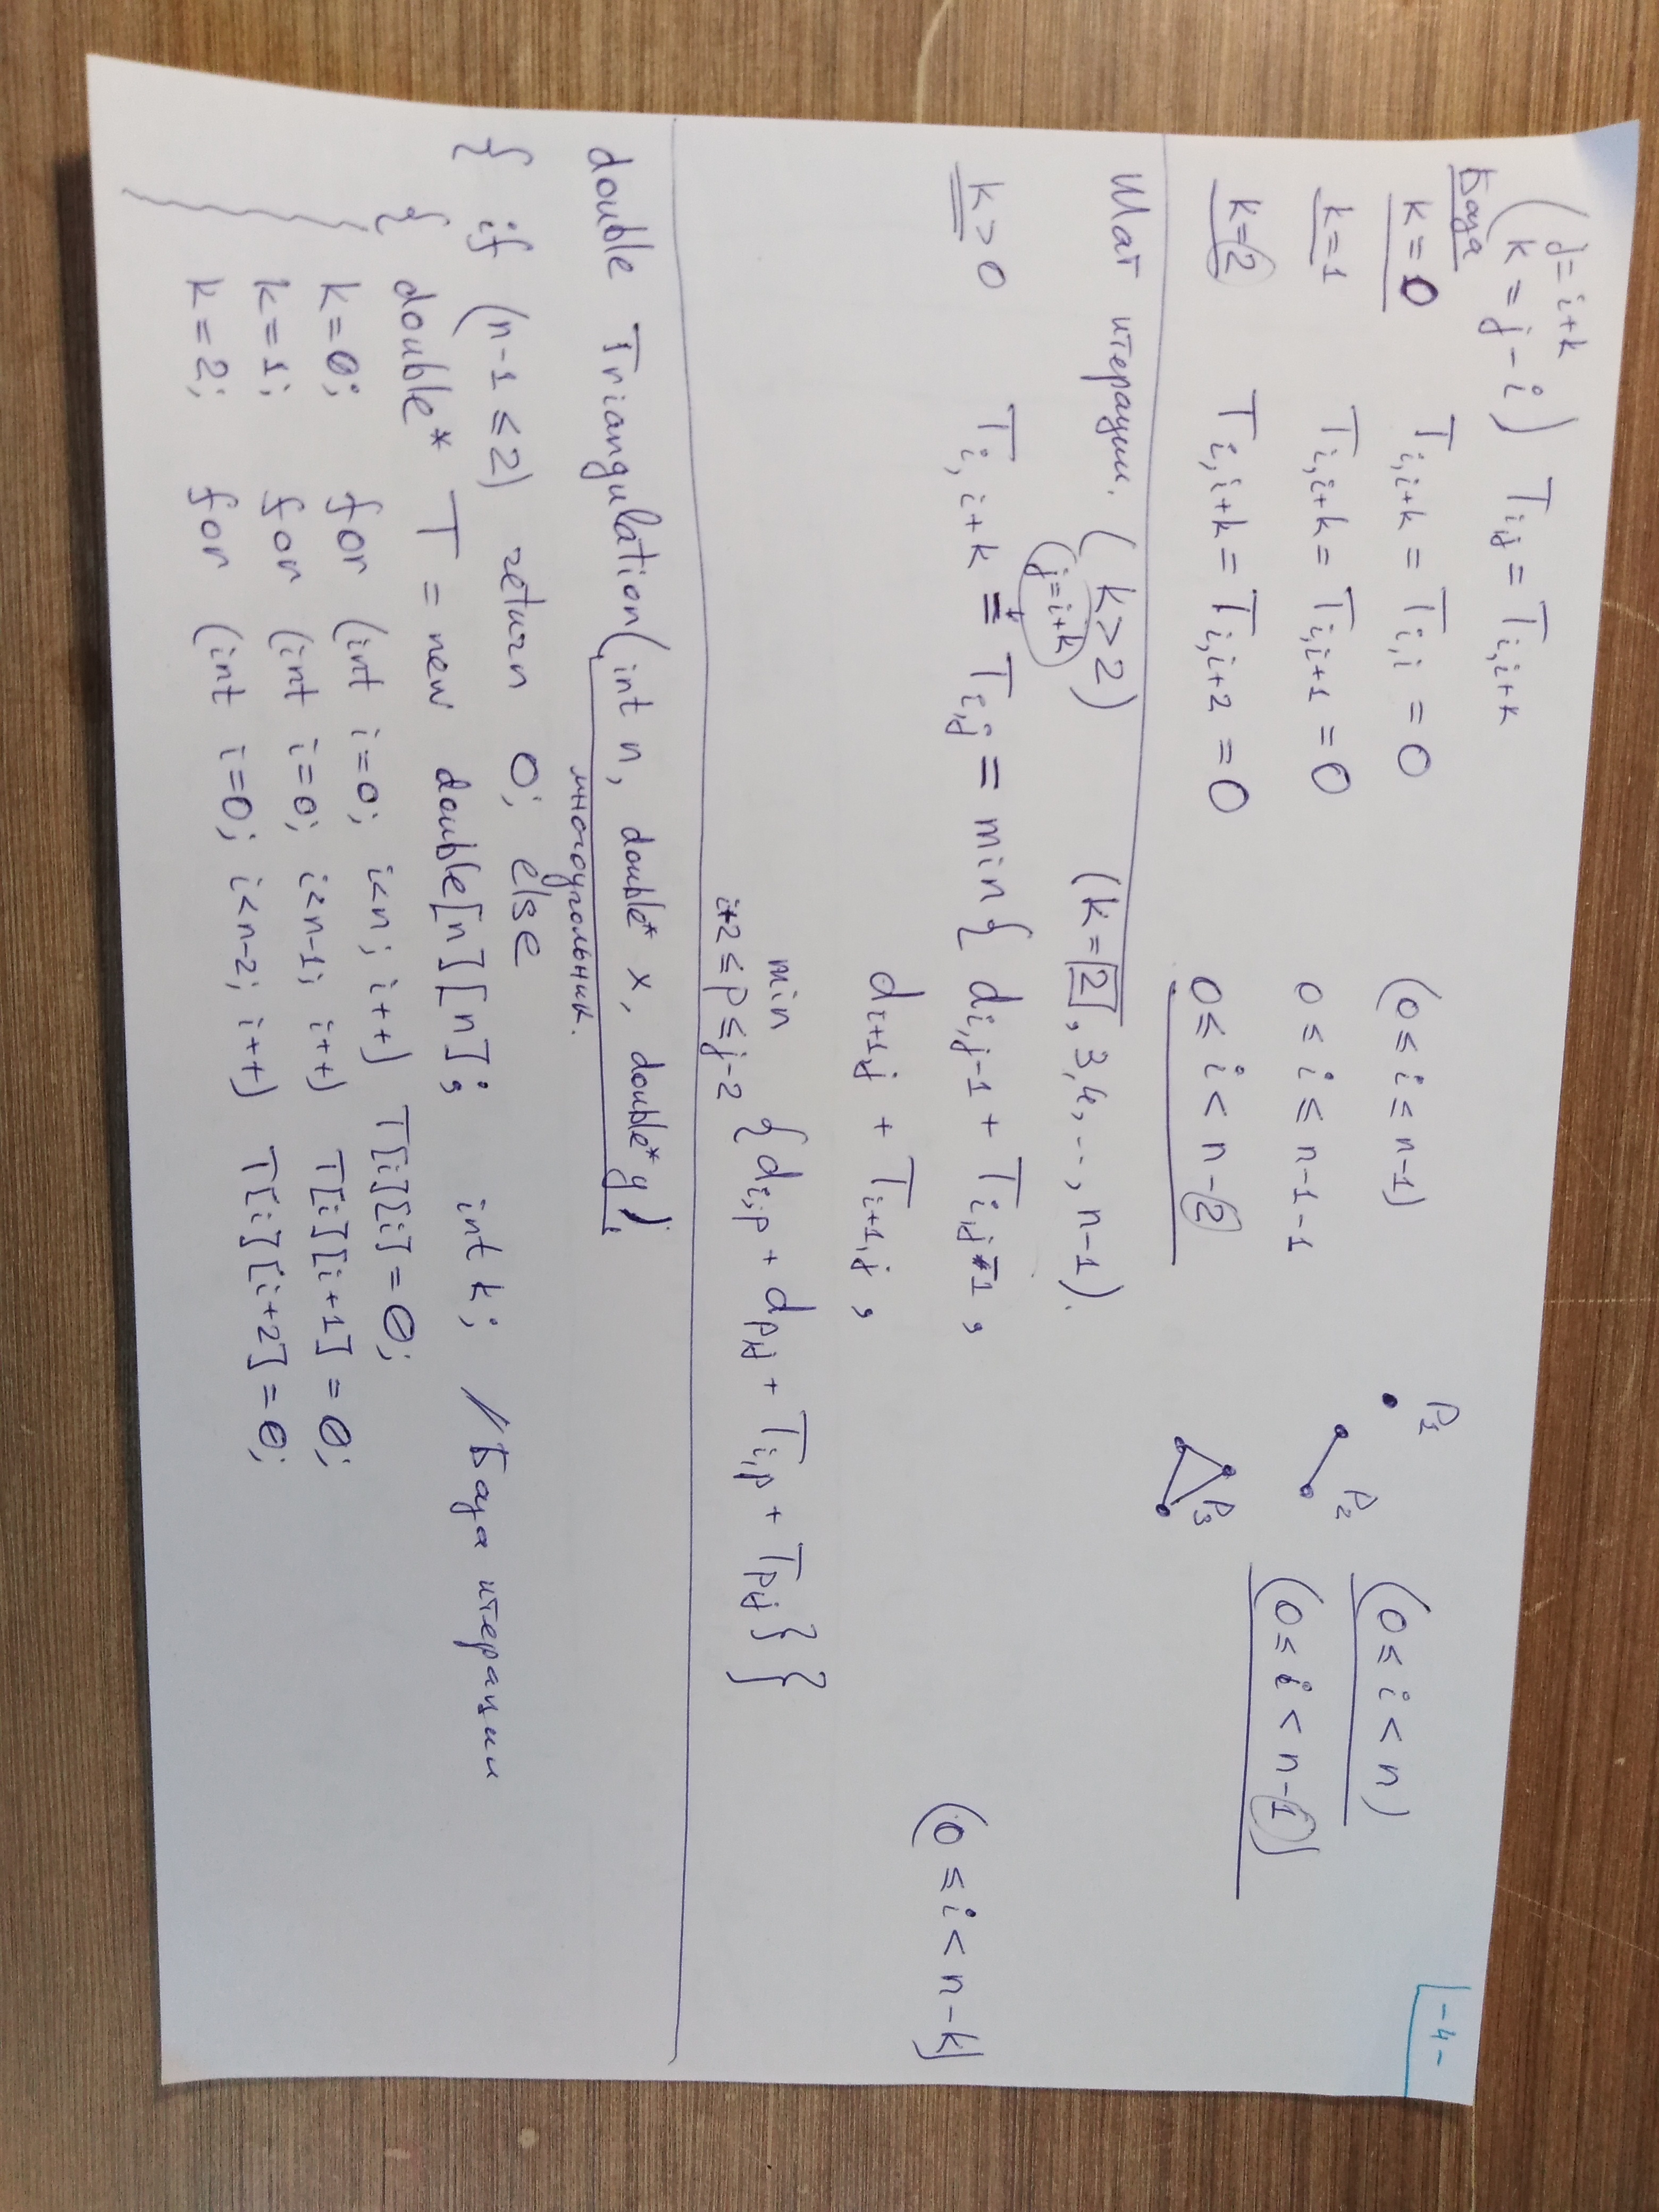 (j = i+k
k = j - i) T i,j = T i,i+k
-4-
База
k = 0 T i,i+k = T i,i = 0 (0 ≤ i ≤ n-1) P1 (0 ≤ i < n)
k = 1 T i,i+k = T i,i+1 = 0 0 ≤ i ≤ n-1-1 P2 (0 ≤ i < n-1)
k = 2 T i,i+k = T i,i+2 = 0 0 ≤ i < n-2 P3
Шаг итерации. (k > 2) (k = 2, 3, 4, ..., n-1).
j = i+k
k > 0 T i,i+k = T i,j = min{ d i,j-1 + T i,j-1 , (0 ≤ i < n-k)
d i+1,j + T i+1,j ,
min {d i,p + d p,j + T i,p + T p,j} }
i+2 ≤ p ≤ j-2
double Triangulation(int n, double* x, double* y),
многоугольник.
{ if (n-1 ≤ 2) return 0; else
{ double* T = new double[n][n]; int k; // База итерации
k = 0; for (int i=0; i<n; i++) T[i][i] = 0;
k = 1; for (int i=0; i<n-1; i++) T[i][i+1] = 0;
k = 2; for (int i=0; i<n-2; i++) T[i][i+2] = 0;